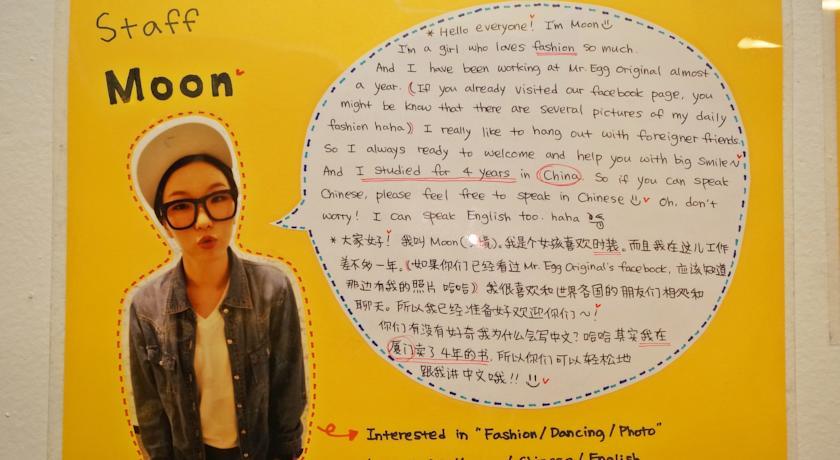 Staff
Moon
* Hello everyone! I'm Moon
I'm a girl who loves fashion so much.
And I have been working at Mr. Egg Original almost
a year. (If you already visited our facebook page, you
might be know that there are several pictures of my daily
fashion haha) I really like to hang out with foreigner friends.
So I always ready to welcome and help you with big smile~
And I studied for 4 years in China. So if you can speak
Chinese, please feel free to speak in Chinese Oh, don't
worry! I can speak English too. haha
* 大家好! 我叫 Moon( ). 我是个女孩喜欢时装. 而且我在这儿工作
差不多一年. (如果你们已经看过 Mr. Egg Original's facebook, 应该知道
那边有我的照片 哈哈) 我很喜欢和世界各国的朋友们相处和
聊天. 所以我已经准备好欢迎你们~!
你们有没有好奇我为什么会写中文? 哈哈 其实我在
厦门卖了4年的书. 所以你们可以轻松地
跟我讲中文哦!!
Interested in "Fashion/Dancing/Photo"
/Chinese/English